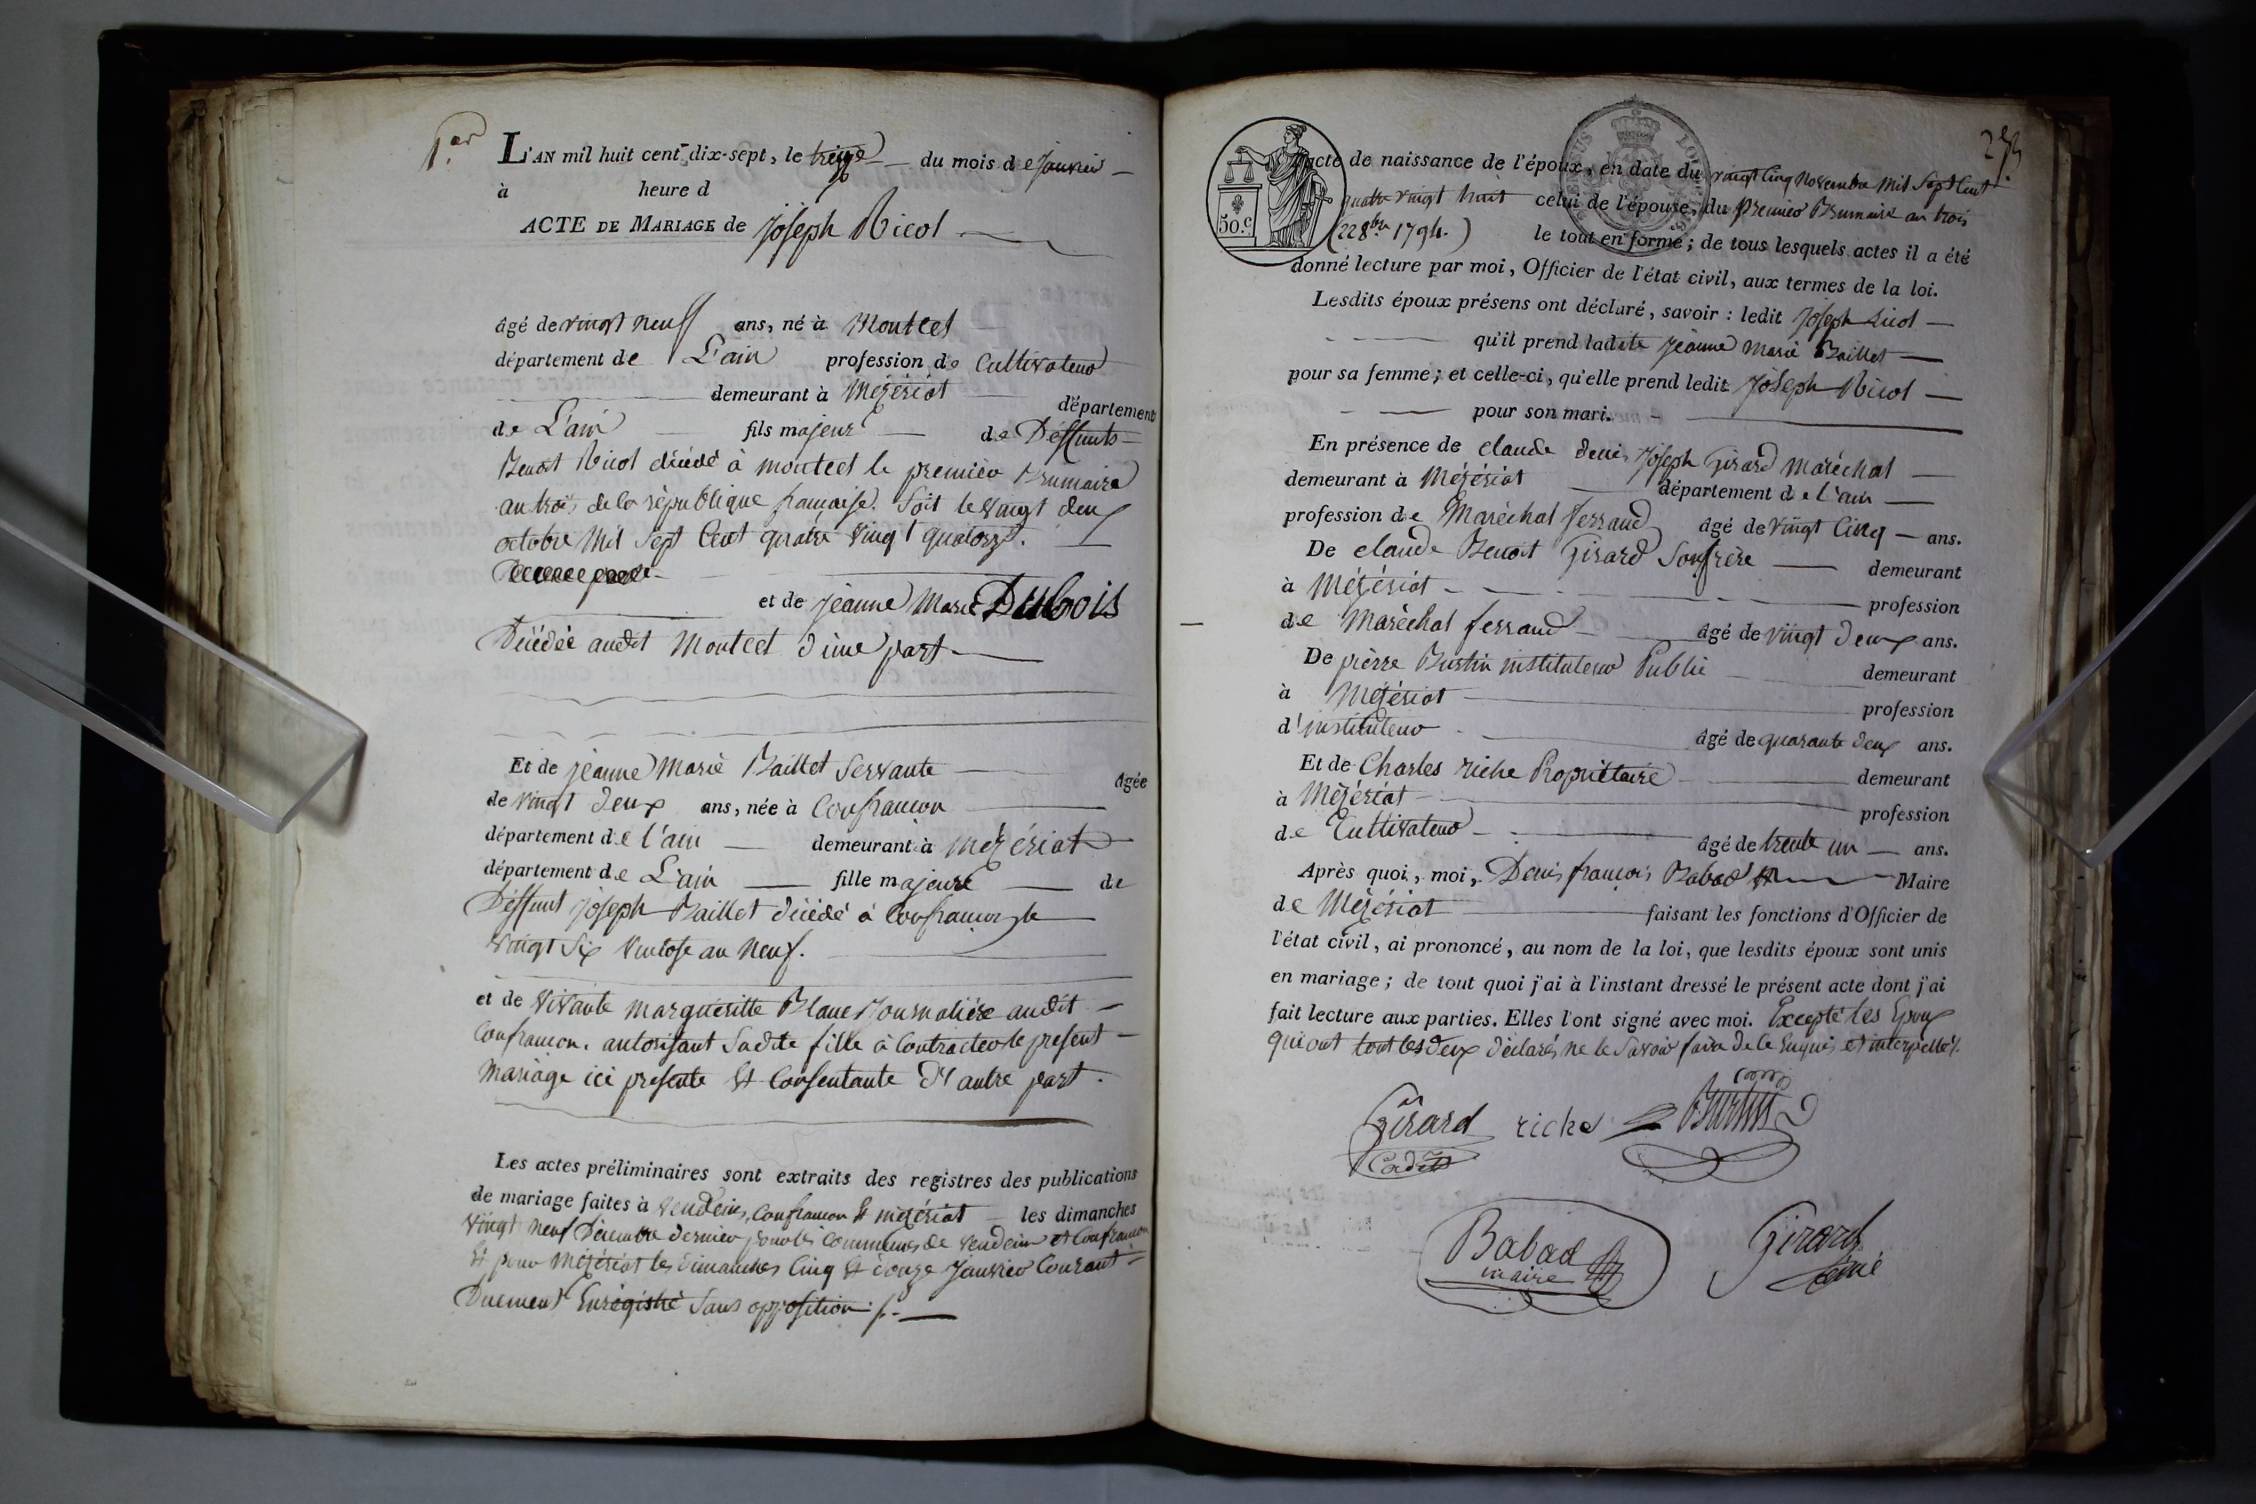 1.er
L'AN mil huit cent dix-sept, le treize du mois de Janvier
à heure d
ACTE DE MARIAGE de Joseph Nicol
âgé de vingt neuf ans, né à Montcet
département de L'ain profession de Cultivateur
demeurant à Mézériat département
de L'ain fils majeur de Deffunts
Benoit Nicol décédé à montcet le premier Brumaire
an trois de la république francaise. Soit le vingt deux
octobre Mil Sept Cent quatre vingt quatorze.
et de jeanne Marie Dubois
Décédée audit Montcet d'une part
Et de jeanne Marie Baillet Servante âgée
de vingt deux ans, née à Confrancon
département de l'ain demeurant à Mézériat
département de L'ain fille majeure de
Deffunt Joseph Baillet décédé à Confrançon le
vingt Six Ventose an Neuf.
et de vivante margueritte Blanc Journalière audit
Confrancon. autorisant Sadite fille à Contracter le présent
Mariage ici présente et Consentante D'autre part.
Les actes préliminaires sont extraits des registres des publications
de mariage faites à vendeins, Confrancon & mézériat les dimanches
vingt neuf Décembre dernier pour les communes de vendeins et Confrancon
Et pour Mézériat les dimanches Cinq & douze Janvier Courant
Duement Enregistré Sans opposition
253
50.c
acte de naissance de l'époux, en date du vingt Cinq Novembre Mil Sept Cent
quatre vingt huit celui de l'épouse, du Premier Brumaire an trois
(22 8bre 1794.) le tout en forme; de tous lesquels actes il a été
donné lecture par moi, Officier de l'état civil, aux termes de la loi.
Lesdits époux présens ont déclaré, savoir : ledit Joseph Nicol
qu'il prend ladite Jeanne Marie Baillet
pour sa femme; et celle-ci, qu'elle prend ledit Joseph Nicol
pour son mari.
En présence de claude denis Joseph Girard Maréchal
demeurant à Mézériat département de l'ain
profession de Maréchal ferrand âgé de vingt Cinq ans.
De claude Benoit Girard Son frère demeurant
à Mézériat profession
de Maréchal ferrand âgé de vingt deux ans.
De pierre Burtin instituteur Public demeurant
à Mézériat profession
d'instituteur âgé de quarante deux ans.
Et de Charles riche Propriétaire demeurant
à Mézériat profession
de Cultivateur âgé de trente un ans.
Après quoi, moi, Denis françois Babad Maire
de Mézériat faisant les fonctions d'Officier de
l'état civil, ai prononcé, au nom de la loi, que lesdits époux sont unis
en mariage; de tout quoi j'ai à l'instant dressé le présent acte dont j'ai
fait lecture aux parties. Elles l'ont signé avec moi. Excepté les Epoux
qui ont tout les deux déclarés ne le Savoir faire de ce Enquis et interpellés.
Girard riche Burtin
Cadet
Babad Girard
maire ainé